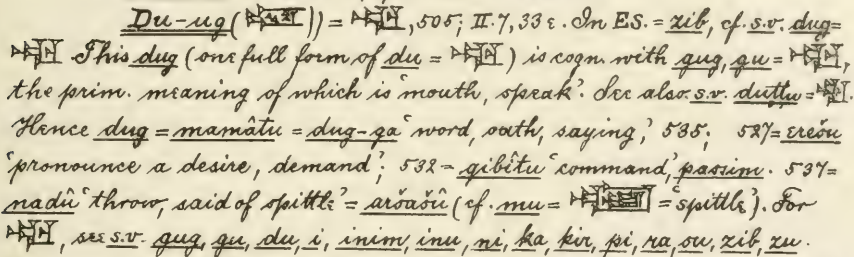 Du-ug (𒂁) = 𒅗, 505; II. 7, 33 ε. In ES. = zib, cf. s.v. dug =
𒅗. This dug (one full form of du = 𒅗) is cogn. with gug, gu = 𒅗,
the prim. meaning of which is 'mouth, speak'. See also s.v. duttu = 𒅗.
Hence dug = mamâtu = dug-ga 'word, oath, saying,' 535; 527 = erešu
'pronounce a desire, demand'; 532 = gibîtu 'command,' passim. 537 =
nadû 'throw, said of spittle' = aršašû (cf. mu = = 'spittle'). For
𒅗, see s.v. gug, gu, du, i, inim, inu, ni, ka, kir, pi, ra, su, zib, zu.